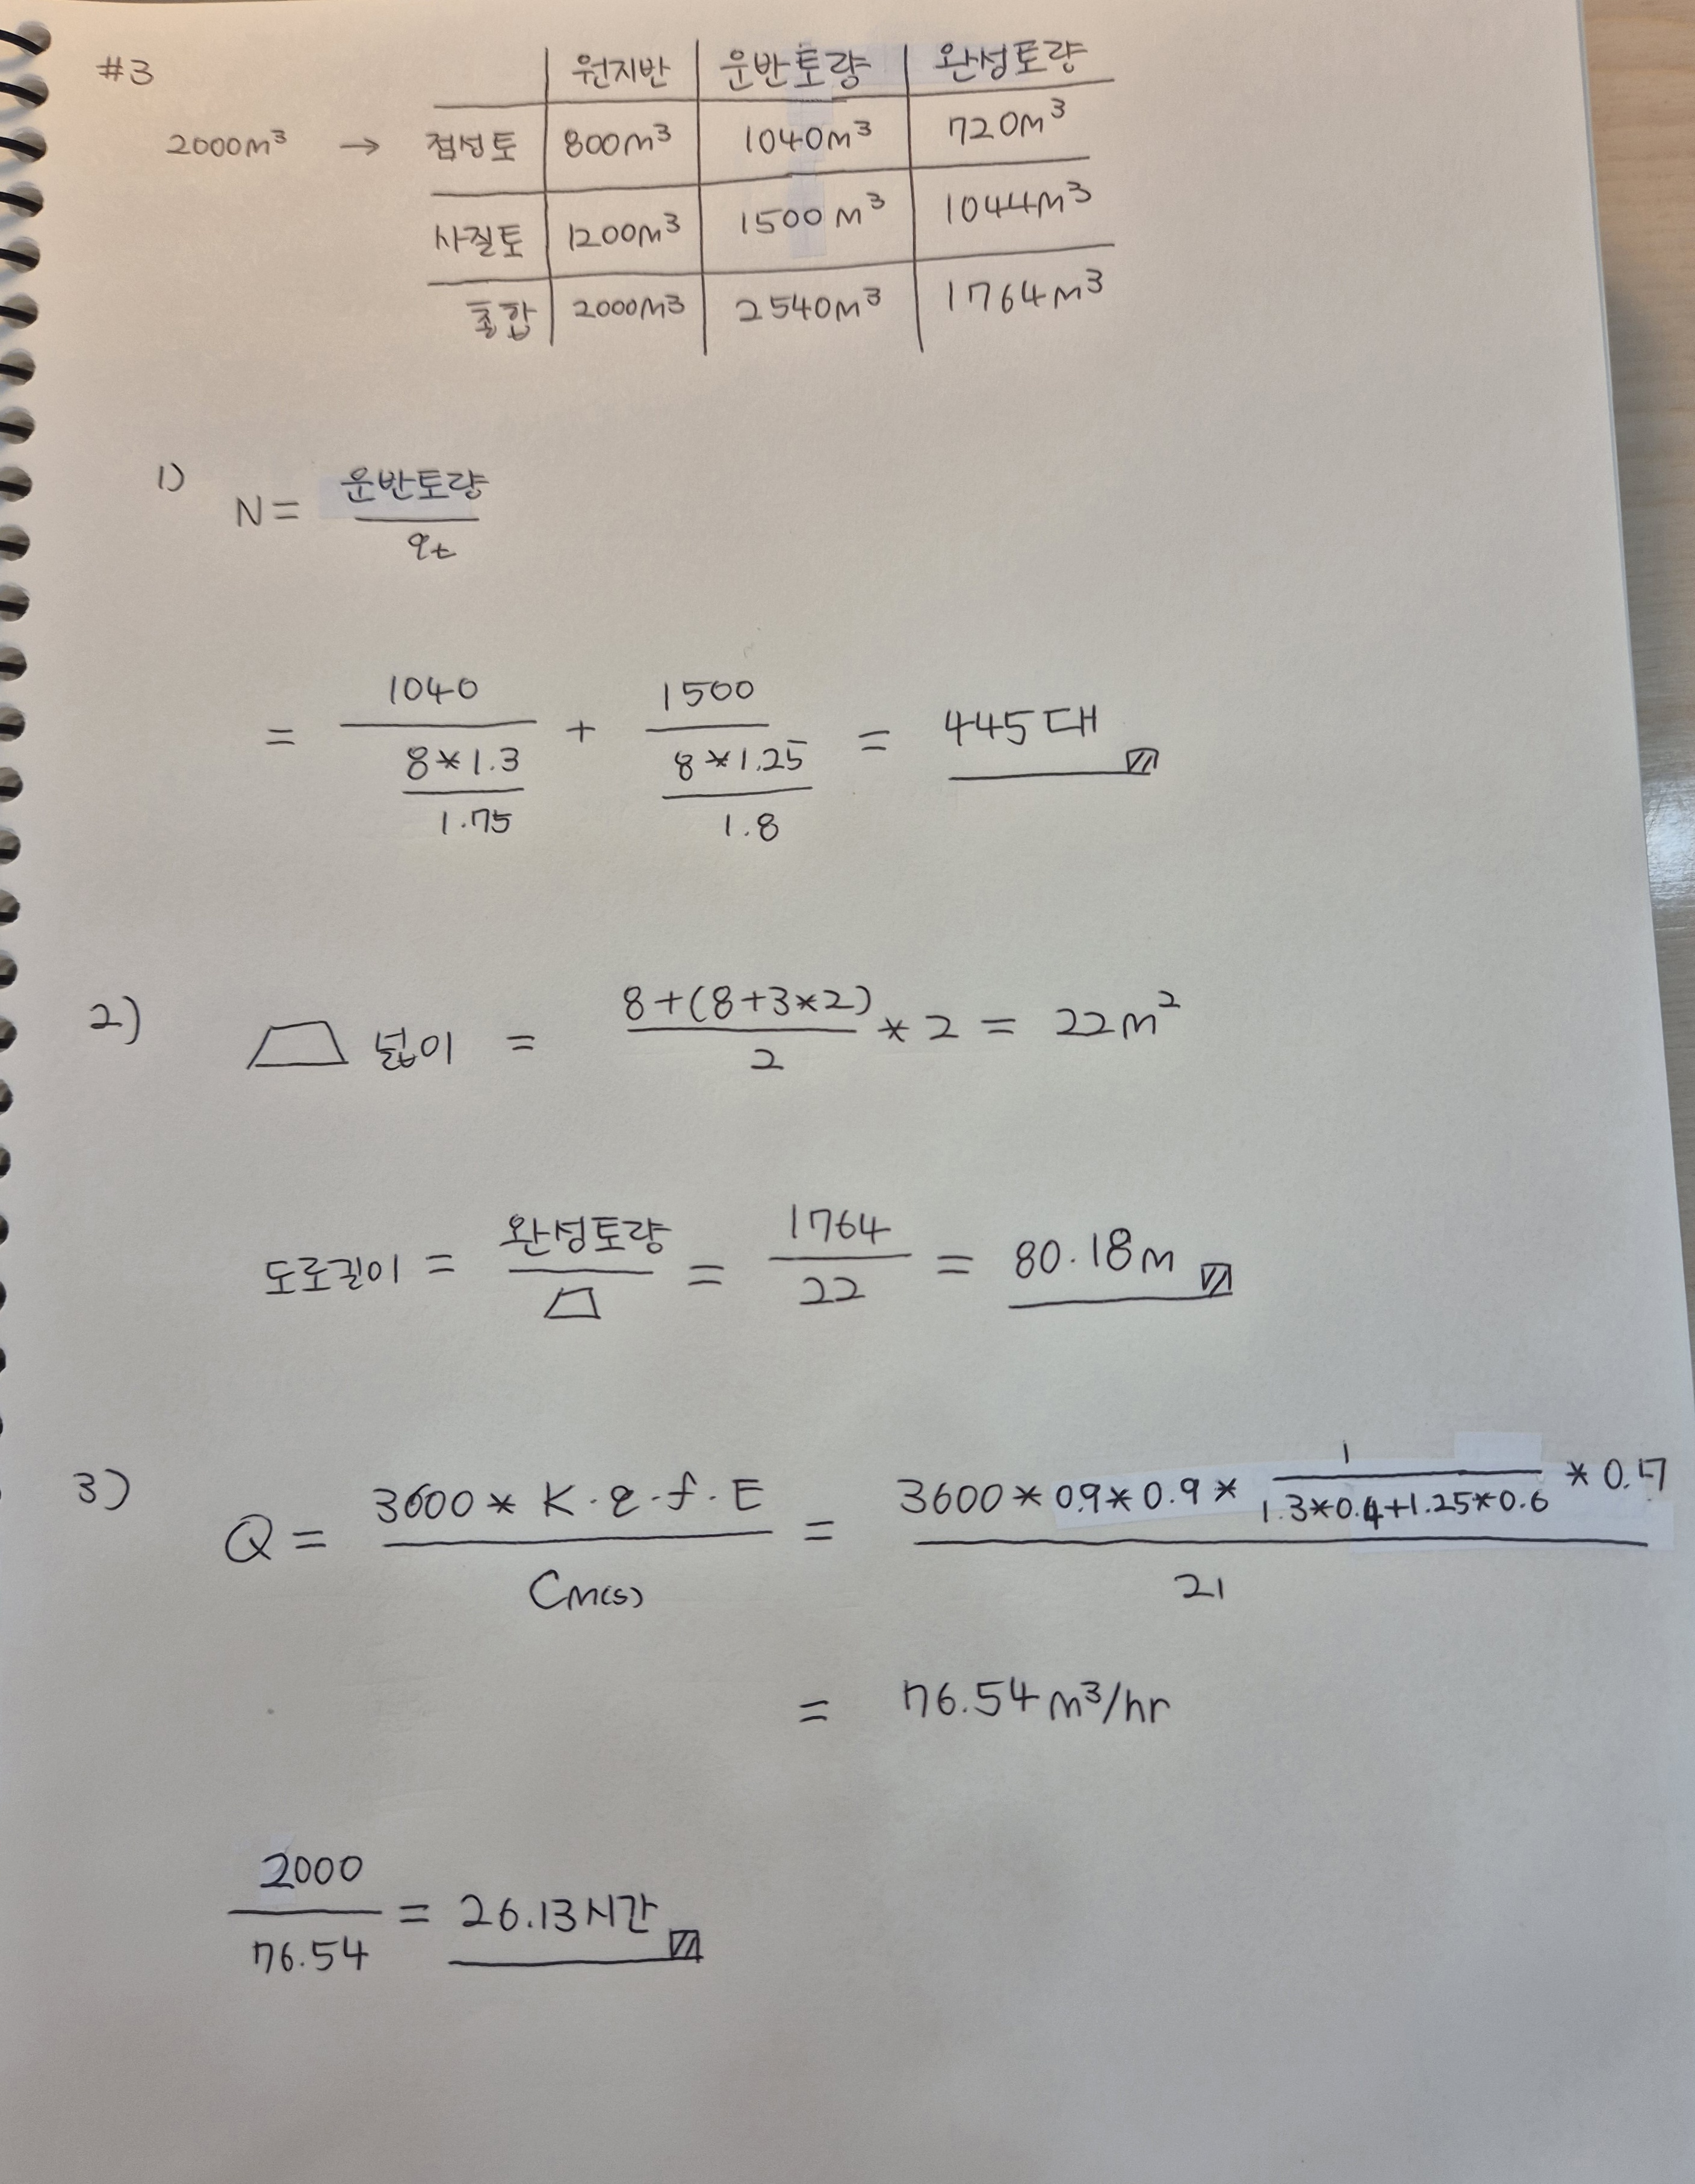 #3
원지반 운반토량 완성토량
2000m³ → 점성토 800m³ 1040m³ 720m³
사질토 1200m³ 1500m³ 1044m³
총합 2000m³ 2540m³ 1764m³
1) N = 운반토량 / qt
= 1040 / (8*1.3 / 1.75) + 1500 / (8*1.25 / 1.8) = 445대
2) 넓이 = 8+(8+3*2) / 2 * 2 = 22m²
도로길이 = 완성토량 / = 1764 / 22 = 80.18m
3) Q = 3600 * K·q·f·E / Cm(s) = 3600 * 0.9 * 0.9 * 1 / (1.3*0.4+1.25*0.6) * 0.7 / 21
= 76.54 m³/hr
2000 / 76.54 = 26.13시간